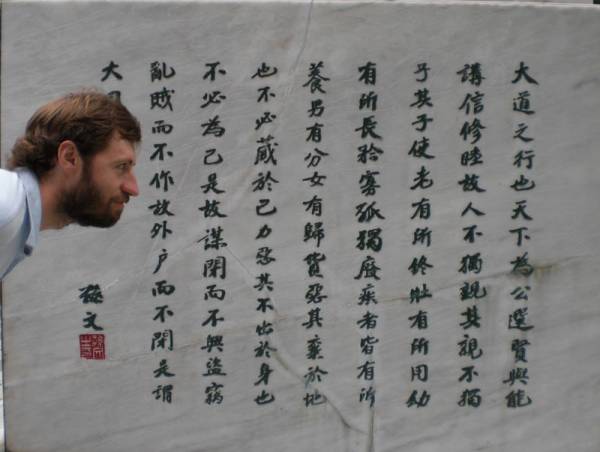 大道之行也天下為公選賢與能
講信修睦故人不獨親其親不獨
子其子使老有所終壯有所用幼
有所長矜寡孤獨廢疾者皆有所
養男有分女有歸貨惡其棄於地
也不必藏於己力惡其不出於身也
不必為己是故謀閉而不興盜竊
亂賊而不作故外戶而不閉是謂
大
孫文